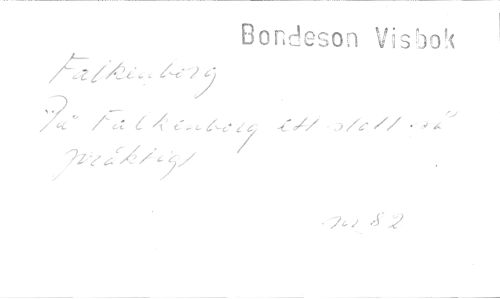 Bondeson Visbok
Falkenborg
"På Falkenborg ett slott så
präktigt
nr 82